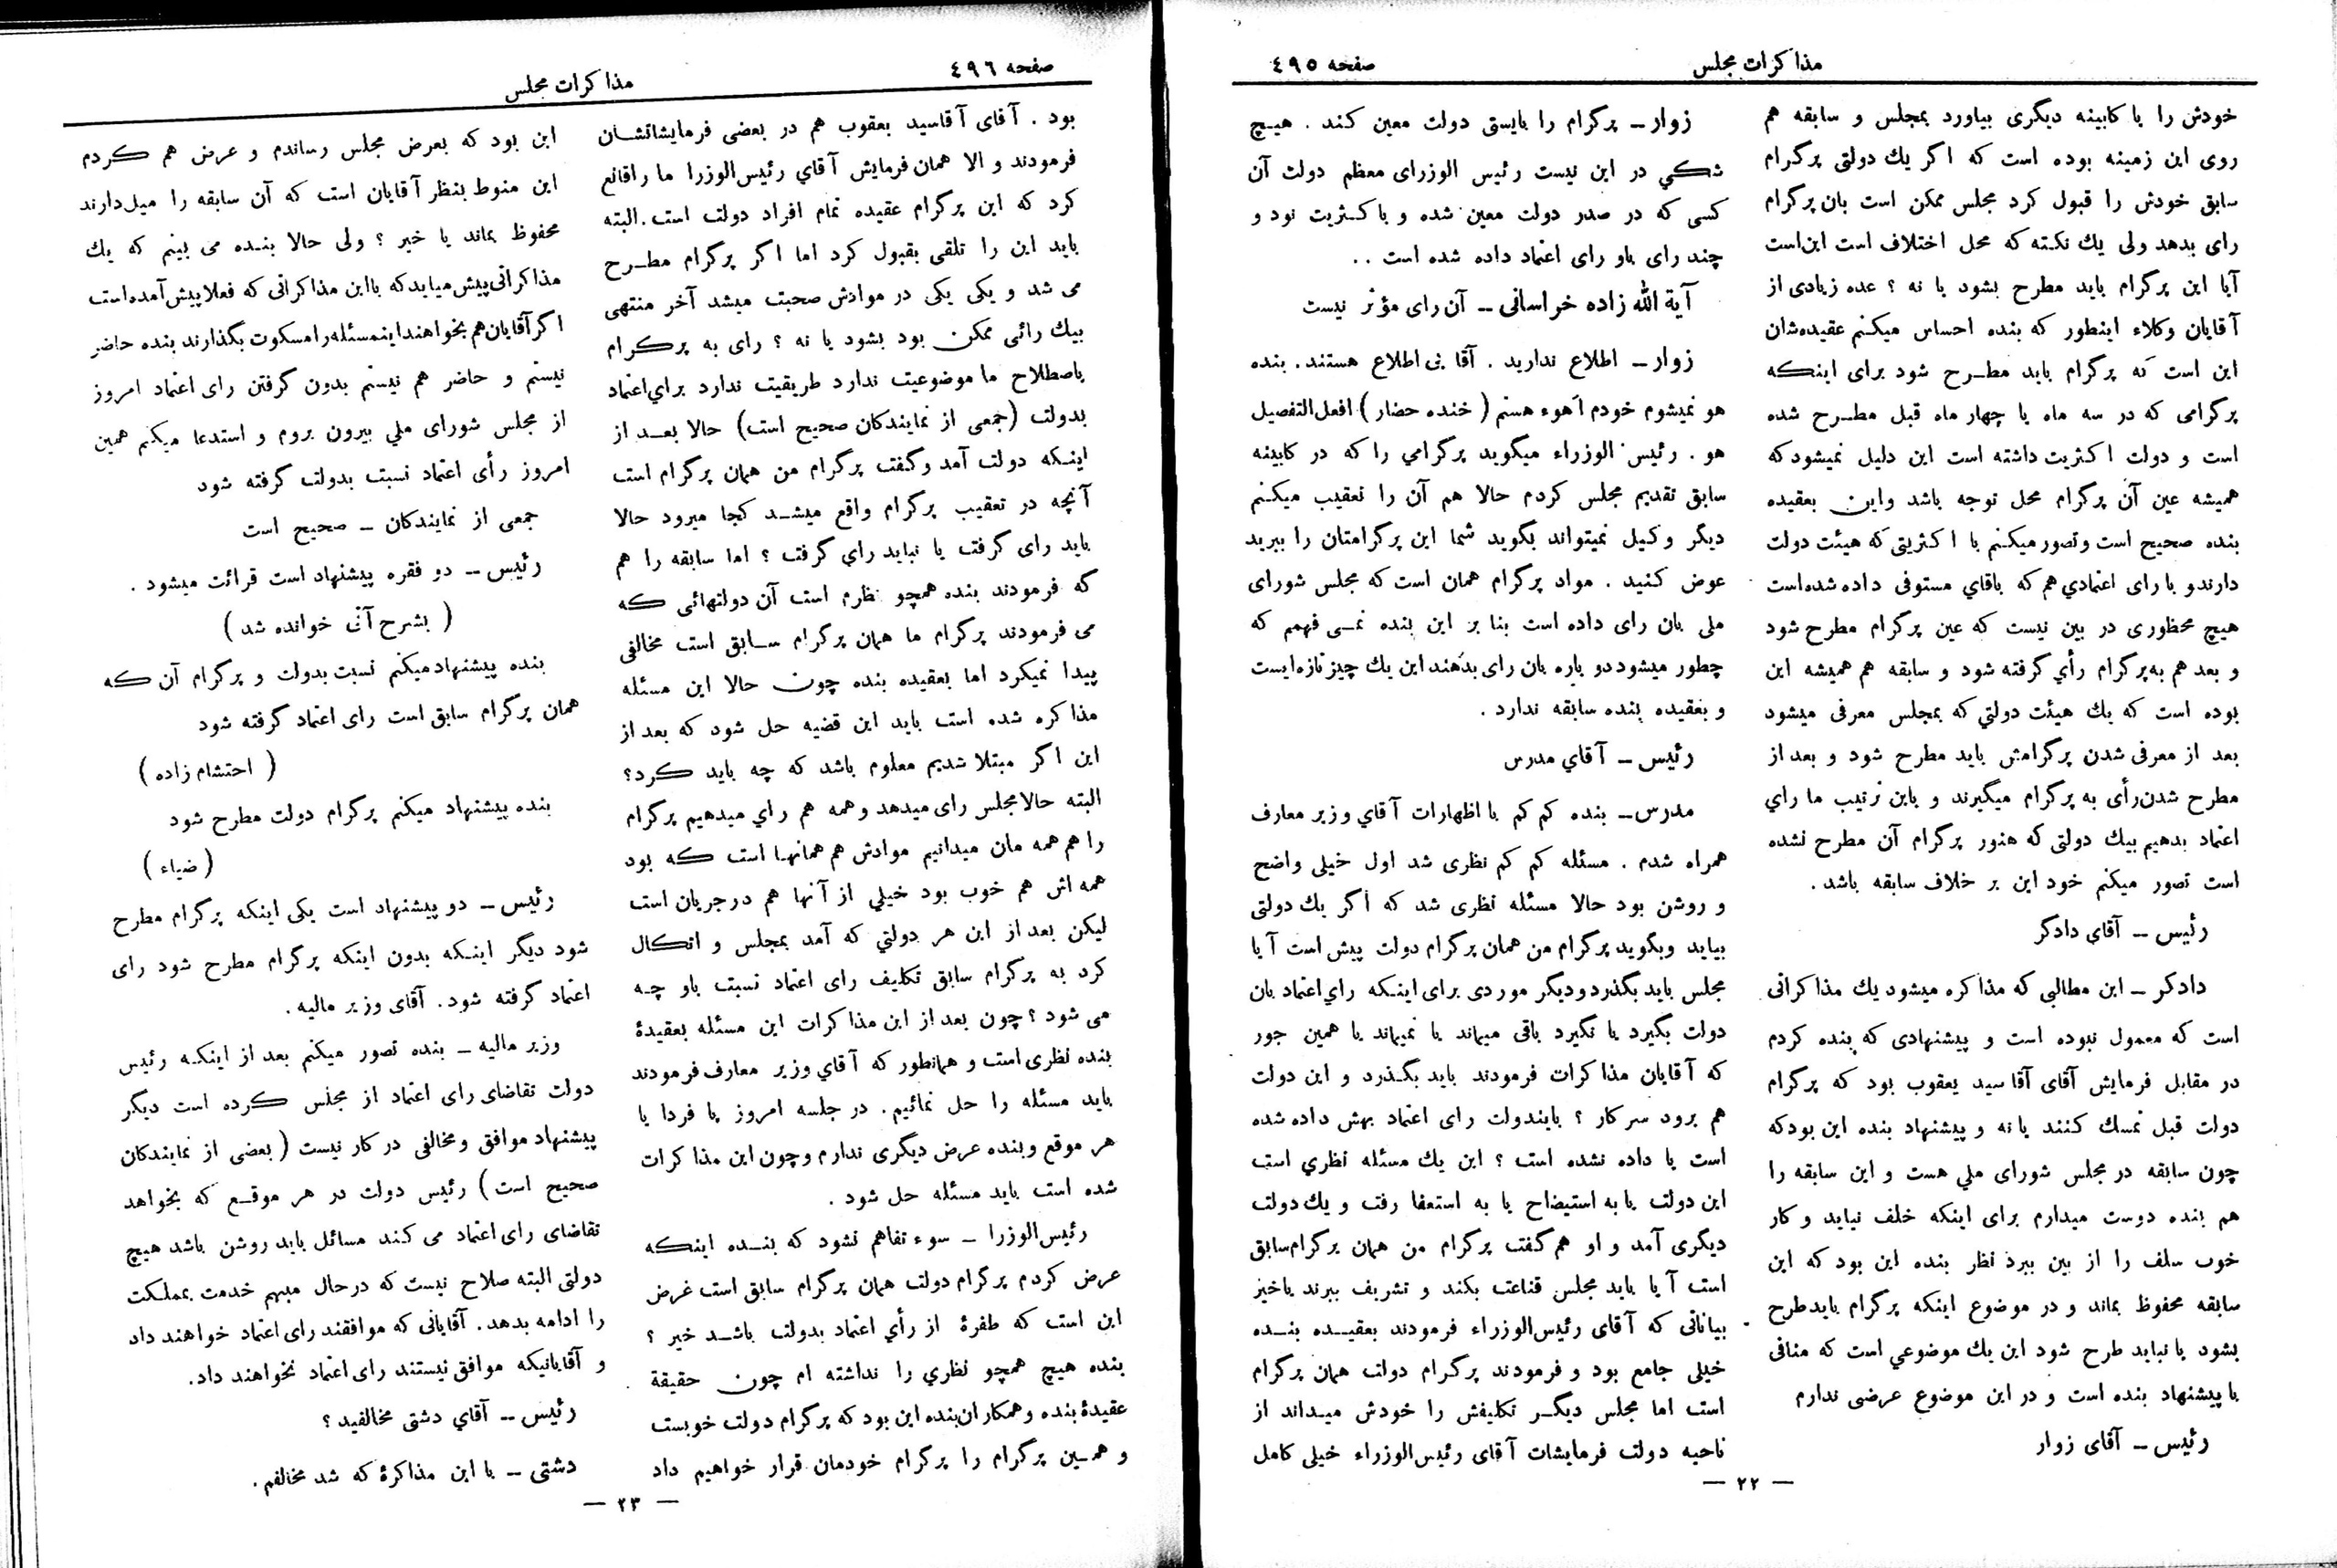 مذاکرات مجلس
صفحه ٤٩٥
خودش را یا کابینه دیگری بیاورد بمجلس و سابقه هم
روی این زمینه بوده است که اگر یك دولتی پرگرام
سابق خودش را قبول کرد مجلس ممکن است بان پرگرام
رای بدهد ولی یك نکته که محل اختلاف است این است
آیا این پرگرام باید مطرح بشود یا نه ؟ عده زیادی از
آقایان وکلاء اینطور که بنده احساس میکنم عقیده‌شان
این است که پرگرام باید مطـرح شود برای اینکه
پرگرامی که در سه ماه یا چهار ماه قبل مطـرح شده
است و دولت اکثریت داشته است این دلیل نمیشود که
همیشه عین آن پرگرام محل توجه باشد واین بعقیده
بنده صحیح است و تصور میکنم با اکثریتی که هیئت دولت
دارند و با رای اعتمادي هم که باقاي مستوفی داده شده است
هیچ محظوری در بین نیست که عین پرگرام مطرح شود
و بعد هم به پرگرام رأي گرفته شود و سابقه هم همیشه این
بوده است که یك هیئت دولتي که بمجلس معرفی میشود
بعد از معرفی شدن پرگرامش باید مطرح شود و بعد از
مطرح شدن رأی به پرگرام میگیرند و باین ترتیب ما راي
اعتماد بدهیم بیك دولتی که هنور پرگرام آن مطرح نشده
است تصور میکنم خود این بر خلاف سابقه باشد .
رئیس ــ آقاي دادگر
دادگر ــ این مطالبی که مذاکره میشود یك مذاکراتی
است که معمول نبوده است و پیشنهادی که بنده کردم
در مقابل فرمایش آقای آقا سید یعقوب بود که پرگرام
دولت قبل تمسك کنند یا نه و پیشنهاد بنده این بود که
چون سابقه در مجلس شورای ملي هست و این سابقه را
هم بنده دوست میدارم برای اینکه خلف نیاید و کار
خوب سلف را از بین ببرد نظر بنده این بود که این
سابقه محفوظ بماند و در موضوع اینکه پرگرام باید طرح
بشود یا نباید طرح شود این یك موضوعي است که منافی
با پیشنهاد بنده است و در این موضوع عرضی ندارم
رئیس ــ آقای زوار
زوار ــ پرگرام را بایستی دولت معین کند . هیچ
شکي در این نیست رئیس الوزرای معظم دولت آن
کسی که در صدر دولت معین شده و با کثریت نود و
چند رای باو رای اعتماد داده شده است . .
آیة الله زاده خراسانی ــ آن رای مؤثر نیست
زوار ــ اطلاع ندارید . آقا بی اطلاع هستند . بنده
هو نمیشوم خودم اهوء هستم ( خنده حضار ) افعل التفصیل
هو . رئیس الوزراء میگوید پرگرامي را که در کابینه
سابق تقدیم مجلس کردم حالا هم آن را تعقیب میکنم
دیگر وکیل نمیتواند بگوید شما این پرگرامتان را ببرید
عوض کنید . مواد پرگرام همان است که مجلس شورای
ملی بان رای داده است بنا بر این بنده نمـی فهمم که
چطور میشود دو باره بان رای بدهند این یك چیز تازه ایست
و بعقیده بنده سابقه ندارد .
رئیس ــ آقاي مدرس
مدرس ــ بنده کم کم با اظهارات آقاي وزیر معارف
همراه شدم . مسئله کم کم نظری شد اول خیلی واضح
و روشن بود حالا مسئله نظری شد که اگر یك دولتی
بیاید وبگوید پرگرام من همان پرگرام دولت پیش است آیا
مجلس باید بگذرد ودیگر موردی برای اینکه راي اعتماد بان
دولت بگیرد یا نگیرد باقی میماند یا نمیماند یا همین جور
که آقایان مذاکرات فرمودند باید بگذرد و این دولت
هم برود سر کار ؟ بایندولت رای اعتماد بهش داده شده
است یا داده نشده است ؟ این یك مسئله نظري است
این دولت یا به استیضاح یا به استعفا رفت و یك دولت
دیگری آمد و او هم گفت پرگرام من همان پرگرام سابق
است آیا باید مجلس قناعت بکند و تشریف ببرند یاخیر
بیاناتی که آقای رئیس الوزراء فرمودند بعقیـده بنـده
خیلی جامع بود و فرمودند پرگرام دولت همان پرگرام
است اما مجلس دیگـر تکلیفش را خودش میداند از
ناحیه دولت فرمایشات آقای رئیس الوزراء خیلی کامل
— ٢٢ —
صفحه ٤٩٦
مذاکرات مجلس
بود . آقای آقاسید یعقوب هم در بعضی فرمایشاتشان
فرمودند و الا همان فرمایش آقاي رئیس الوزرا ما راقانع
کرد که این پرگرام عقیده تمام افراد دولت است . البته
باید این را تلقی بقبول کرد اما اگر پرگرام مطـرح
می شد و یکی یکی در موادش صحبت میشد آخر منتهی
بیك رائی ممکن بود بشود یا نه ؟ رای به پرگرام
باصطلاح ما موضوعیت ندارد طریقیت ندارد براي اعتماد
بدولت (جمعی از نمایندگان صحیح است) حالا بعـد از
اینکه دولت آمد وگفت پرگرام من همان پرگرام است
آنچه در تعقیب پرگرام واقع میشـد کجا میرود حالا
باید رای گرفت یا نباید راي گرفت ؟ اما سابقه را هم
که فرمودند بنده همچو نظرم است آن دولتهائی که
می فرمودند پرگرام ما همان پرگرام سـابق است مخالفی
پیدا نمیکرد اما بعقیده بنده چون حالا این مسئله
مذاکره شده است باید این قضیه حل شود که بعد از
این اگر مبتلا شدیم معلوم باشد که چه باید کرد ؟
البته حالا مجلس رای میدهد وهمه هم راي میدهیم پرگرام
را هم همه مان میدانیم موادش هم همانها است که بود
همه اش هم خوب بود خیلي از آنها هم در جریان است
لیکن بعد از این هر دولتي که آمد بمجلس و اتکال
کرد به پرگرام سابق تکلیف رای اعتماد نسبت باو چـه
می شود ؟ چون بعد از این مذاکرات این مسئله بعقیدۀ
بنده نظری است و همانطور که آقاي وزیر معارف فرمودند
باید مسئله را حل نمائیم . در جلسه امروز یا فردا یا
هر موقع وبنده عرض دیگری ندارم وچون این مذاکرات
شده است باید مسئله حل شود .
رئیس الوزرا ــ سوء تفاهم نشود که بنـده اینکه
عرض کردم پرگرام دولت همان پرگرام سابق است غرض
این است که طفرۀ از رأي اعتماد بدولت باشـد خیر ؟
بنده هیچ همچو نظري را نداشته ام چون حقیقة
عقیدۀ بنده وهمکاران بنده این بود که پرگرام دولت خوبست
و همـین پرگرام را پرگرام خودمان قرار خواهیم داد
این بود که بعرض مجلس رساندم و عرض هم کردم
این منوط بنظر آقایان است که آن سابقه را میل دارند
محفوظ بماند یا خیر ؟ ولی حالا بنـده می بینم که یك
مذاکراتی پیش میاید که بااین مذاکراتی که فعلا پیش آمده است
اگر آقایان هم بخواهند اینمسئله را مسکوت بگذارند بنده حاضر
نیستم و حاضر هم نیستم بدون گرفتن رای اعتماد امروز
از مجلس شورای ملي بیرون بروم و استدعا میکنم همین
امروز رأی اعتماد نسبت بدولت گرفته شود
جمعی از نمایندگان ــ صحیح است
رئیس ــ دو فقره پیشنهاد است قرائت میشود .
( بشرح آتی خوانده شد )
بنده پیشنهاد میکنم نسبت بدولت و پرگرام آن که
همان پرگرام سابق است رای اعتماد گرفته شود
( احتشام زاده )
بنده پیشنهاد میکنم پرگرام دولت مطرح شود
( ضیاء )
رئیس ــ دو پیشنهاد است یکی اینکه پرگرام مطرح
شود دیگر اینـکه بدون اینکه پرگرام مطرح شود رای
اعتماد گرفته شود . آقای وزیر مالیه .
وزیر مالیه ــ بنده تصور میکنم بعد از اینکـه رئیس
دولت تقاضای رای اعتماد از مجلس کرده است دیگر
پیشنهاد موافق ومخالفی در کار نیست ( بعضی از نمایندگان
صحیح است ) رئیس دولت در هر موقـع که بخواهد
تقاضای رای اعتماد می کند مسائل باید روشن باشد هیچ
دولتی البته صلاح نیست که در حال مبهم خدمت بمملکت
را ادامه بدهد . آقایانی که موافقند رای اعتماد خواهند داد
و آقایانیکه موافق نیستند رای اعتماد نخواهند داد .
رئیس ــ آقاي دشتی مخالفید ؟
دشتی ــ با این مذاکرۀ که شد مخالفم .
— ٢٣ —